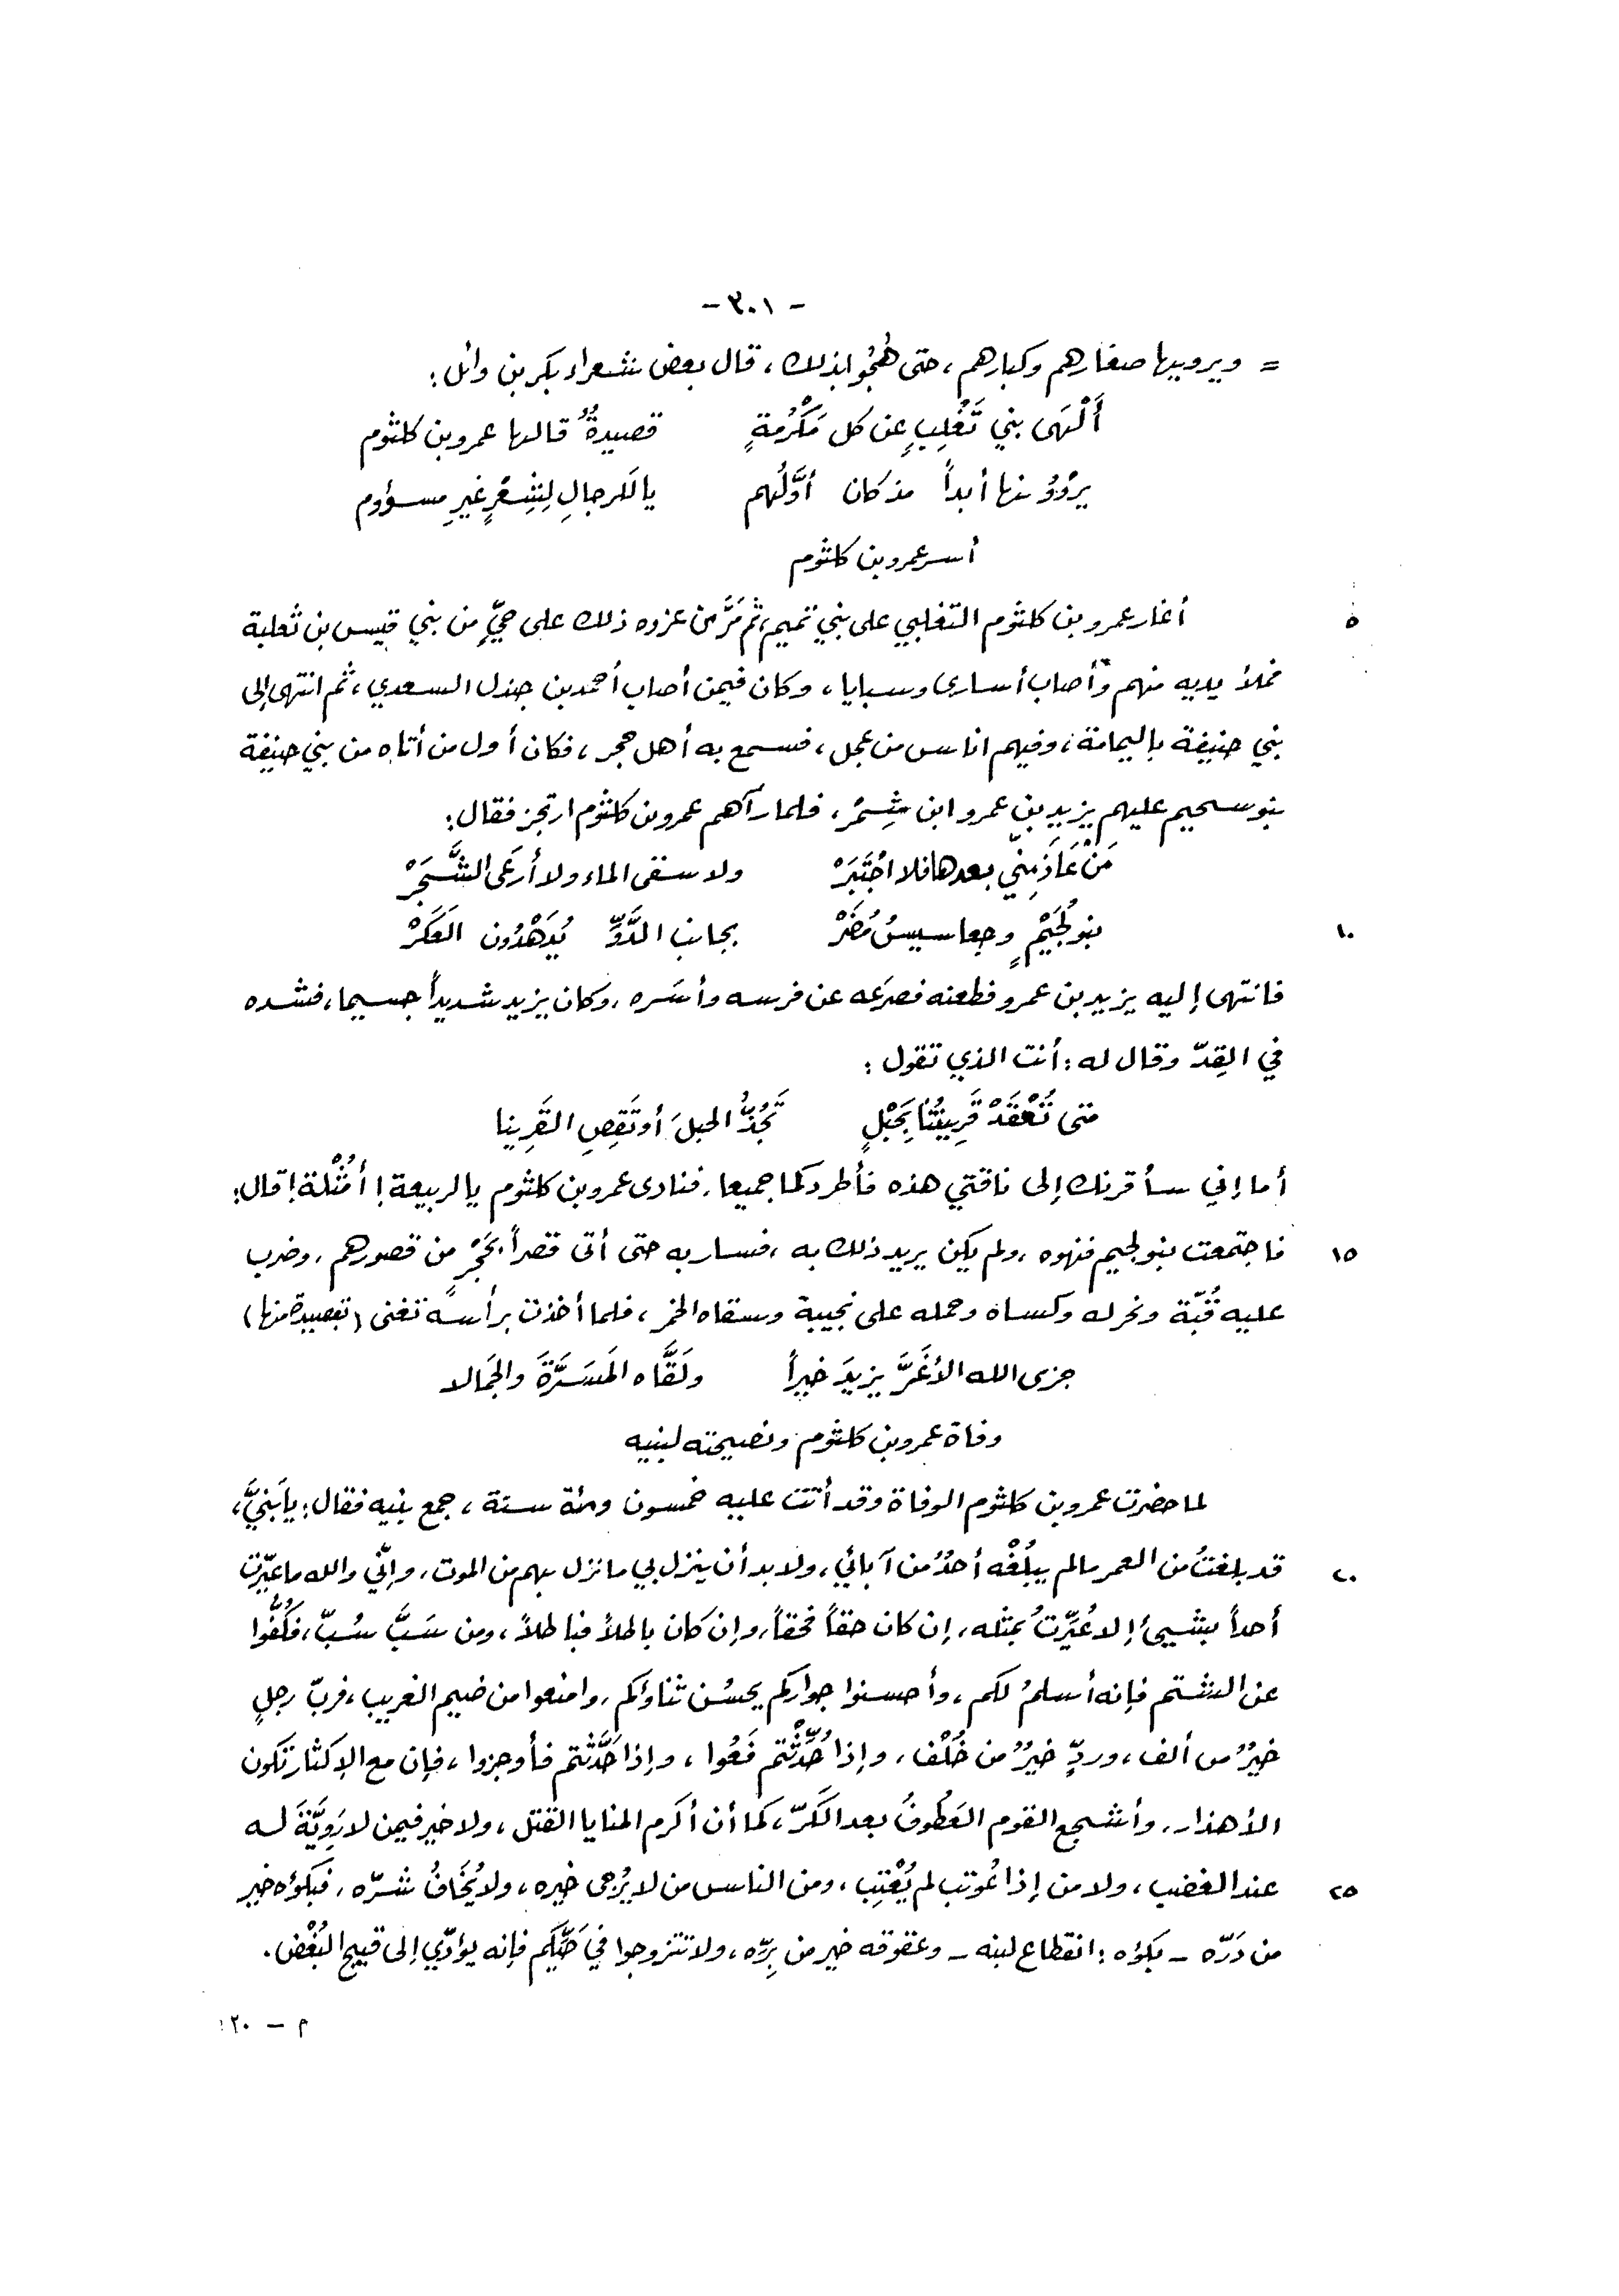 - ٣٠١ -
= ويرويها صغارهم وكبارهم ، حتى هُجُوا بذلك ، قال بعض شعراء بكر بن وائل :
أَلْهَى بني تَغْلِبٍ عن كل مَكْرُمةٍ    قصيدةٌ قالها عمرو بن كلثوم
يرْوُونها أبداً مذ كان أوَّلُهم    يا لَلرجالِ لِشِعْرٍ غيرِ مسؤوم
أسر عمرو بن كلثوم
٥ أغار عمرو بن كلثوم التغلبي على بني تميم ، ثم مَرَّ من غزوه ذلك على حيٍّ من بني قيس بن ثعلبة
فملأ يديه منهم وأصاب أسارى وسبايا ، وكان فيمن أصاب أحمد بن جندل السعدي ، ثم انتهى إلى
بني حنيفة باليمامة ، وفيهم اناس من عجل ، فسمع به أهل حجر ، فكان أول من أتاه من بني حنيفة
بنو سحيم عليهم يزيد بن عمرو ابن شِمْر ، فلما رآهم عمرو بن كلثوم ارتجز فقال :
مَنْ عَاذَ مِنِّي بعدها فلا اجْتَبَرْ    ولا سقى الماء ولا أرعَى الشَّجَرْ
١٠ بنو لُجَيْمٍ وجعاسيسُ مُضَرْ    بجانب الدَّوِّ يُدَهْدُون العَكَرْ
فانتهى إليه يزيد بن عمرو فطعنه فصرَعه عن فرسه وأسَره ، وكان يزيد شديداً جسيما ، فشده
في القِدّ وقال له : أنت الذي تقول :
متى تُعْقَدْ قَرِينتُنا بِحَبْلٍ    تَجُذُّ الحبلَ أو تَقِصِ القَرِينا
أما إني سأقرنك إلى ناقتي هذه فأطردكما جميعا . فنادى عمرو بن كلثوم يا لربيعة ! أمُثْلة ! قال :
١٥ فاجتمعت بنو لجيم فنهوه ، ولم يكن يريد ذلك به ، فسار به حتى أتى قصراً بحَجْرٍ من قصورهم ، وضرب
عليه قُبّة ونحر له وكساه وحمله على نجيبة وسقاه الخمر ، فلما أخذت برأسه تغنى ( بقصيدة منها )
جزى الله الأغَرَّ يزيدَ خيراً    ولَقَّاه المَسَرَّةَ والجَمالا
وفاة عمرو بن كلثوم ونصيحته لبنيه
لما حضرت عمرو بن كلثوم الوفاة وقد أتت عليه خمسون ومئة سنة ، جمع بنيه فقال : يا بَنيَّ ،
٢٠ قد بلغتُ من العمر مالم يبلُغْه أحدٌ من آبائي ، ولا بد أن ينزل بي ما نزل بهم من الموت ، وإنّي والله ما عيّرت
أحداً بشيئ إلا عُيِّرتُ بمثله ، إن كان حقاً فحقاً ، وإن كان باطلاً فباطلاً ، ومن سَبَّ سُبّ ، فكُفُّوا
عن الشتم فإنه أسلمُ لكم ، وأحسنوا جواركم يحسُن ثناؤكم ، وامنعوا من ضيم الغريب ، فربّ رجلٍ
خيرٌ من ألف ، وردٍّ خيرٌ من خُلْف ، وإذا حُدِّثْتم فَعُوا ، وإذا حَدَّثتم فأوجزوا ، فإن مع الإكثار تكون
الأهذار ، وأشجع القوم العَطُوفُ بعد الكَرّ ، كما أن أكرم المنايا القتل ، ولا خير فيمن لا رَوِيَّةَ له
٢٥ عند الغضب ، ولا من إذا عُوتب لم يُعْتِب ، ومن الناس من لا يُرْجى خيره ، ولا يُخَافُ شرّه ، فبكؤه خير
من دَرّه - بكؤه : انقطاع لبنه - وعقوقه خير من بِرّه ، ولا تتزوجوا في حَيِّكم فإنه يؤدّي إلى قبيح البُغْض .
م - ٢٠